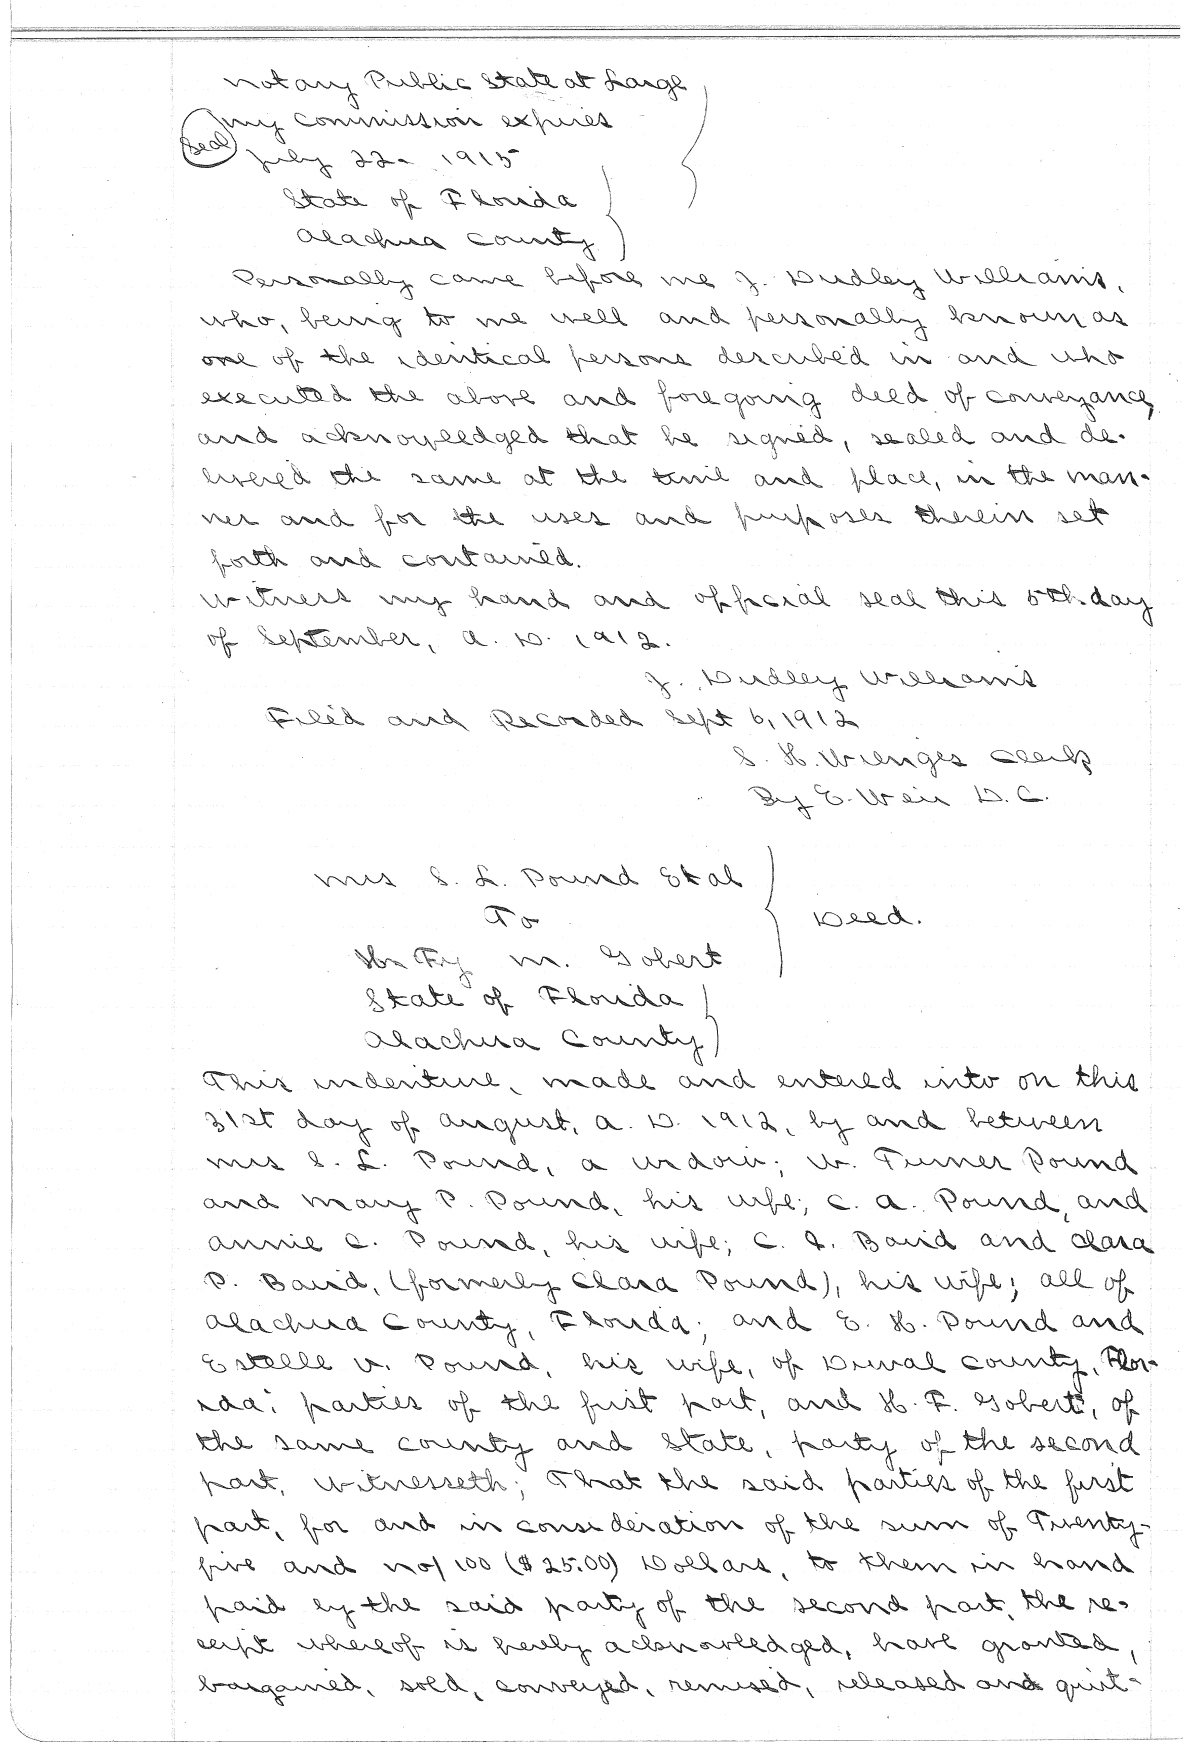 Notary Public State at Large
My Commission expires
Seal
July 22 - 1915
State of Florida
Alachua County
Personally came before me J. Dudley Williams,
who, being to me well and personally known as
one of the identical persons described in and who
executed the above and foregoing deed of conveyance,
and acknowledged that he signed, sealed and de-
livered the same at the time and place, in the man-
ner and for the uses and purposes therein set
forth and contained.
Witness my hand and official seal this 5th day
of September, A. D. 1912.
J. Dudley Williams
Filed and Recorded Sept 6, 1912
S. H. Wienges Clerk
By E. Weir D. C.
Mrs S. L. Pound Et al
To
Deed.
M. Gobert
State of Florida
Alachua County
This indenture, made and entered into on this
31st day of August, A. D. 1912, by and between
Mrs S. L. Pound, a widow; W. Turner Pound
and Mary P. Pound, his wife; C. A. Pound, and
Annie C. Pound, his wife; C. I. Baird and Clara
P. Baird, (formerly Clara Pound), his wife; all of
Alachua County, Florida; and E. H. Pound and
Estelle V. Pound, his wife, of Duval County, Flor-
ida; parties of the first part, and H. F. Gobert, of
the same county and State, party of the second
part, Witnesseth; That the said parties of the first
part, for and in consideration of the sum of Twenty-
five and no/100 ($25.00) Dollars, to them in hand
paid by the said party of the second part, the re-
ceipt whereof is hereby acknowledged, have granted,
bargained, sold, conveyed, remised, released and quit-